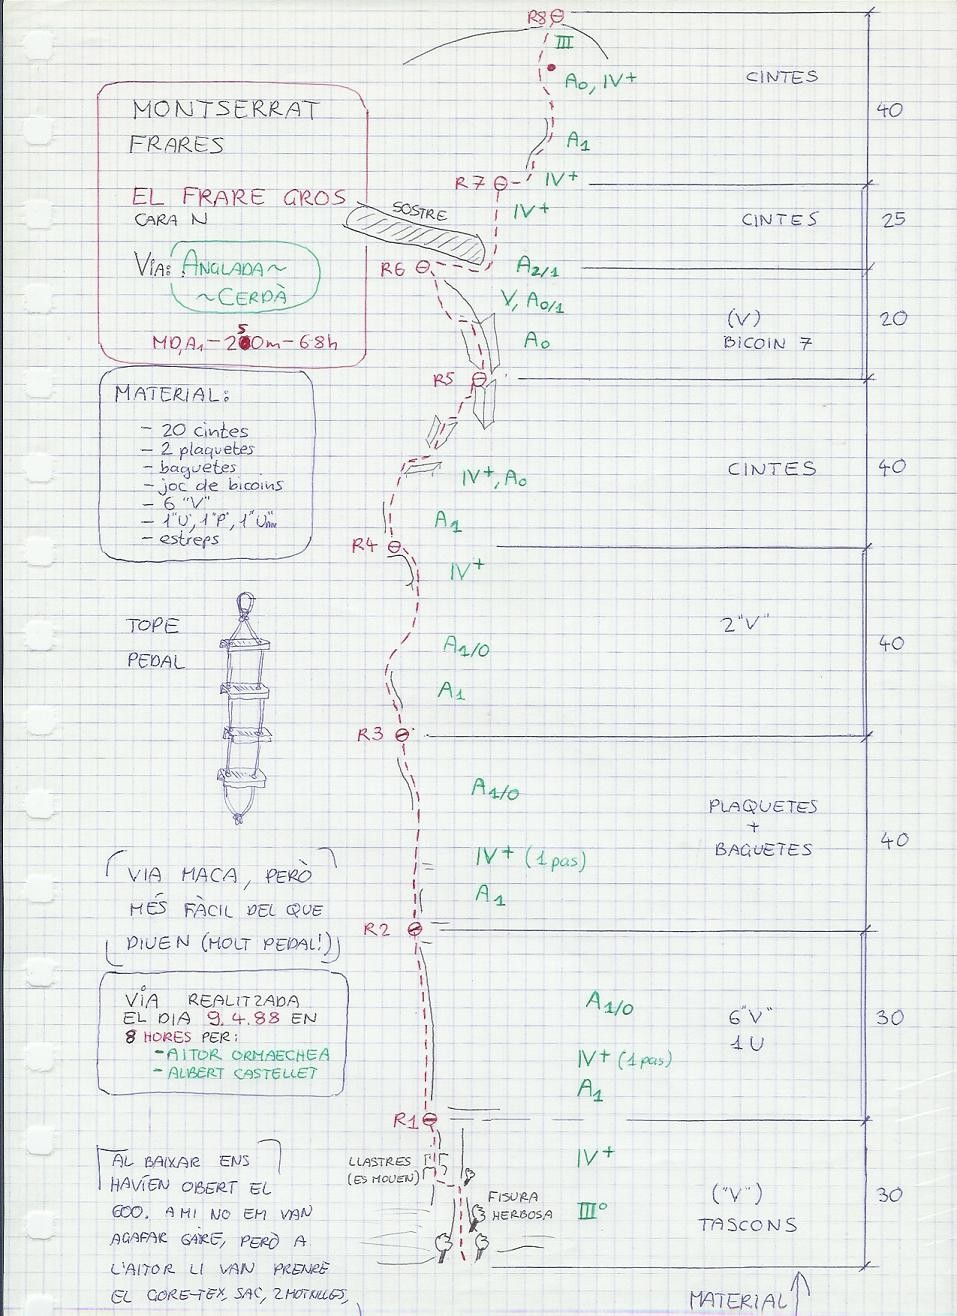 R8
III
A0, IV+
CINTES
40
A1
R7
IV+
MONTSERRAT
FRARES
EL FRARE GROS
CARA N
VIA: ANGLADA~
~CERDÀ
MD, A1 - 250m - 6-8h
SOSTRE
IV+
CINTES
25
R6
A2/1
V, A0/1
A0
(V)
BICOIN 7
20
R5
MATERIAL:
- 20 cintes
- 2 plaquetes
- baguetes
- joc de bicoins
- 6 "V"
- 1"U", 1"P",
- estreps
IV+, A0
CINTES
40
A1
R4
IV+
2"V"
40
A1/0
A1
R3
TOPE
PEDAL
A1/0
IV+ (1 pas)
A1
PLAQUETES
+
BAGUETES
40
R2
VIA MACA, PERÒ
MÉS FÀCIL DEL QUE
DIUEN (MOLT PEDAL!)
VIA REALITZADA
EL DIA 9.4.88 EN
8 HORES PER:
- AITOR ORMAECHEA
- ALBERT CASTELLET
A1/0
IV+ (1 pas)
A1
6"V"
1 U
30
R1
LLASTRES
(ES MOUEN)
IV+
FISURA
HERBOSA
IIIº
("V")
TASCONS
30
AL BAIXAR ENS
HAVIEN OBERT EL
600. A MI NO EM VAN
AGAFAR GAIRE, PERÒ A
L'AITOR LI VAN PRENRE
EL GORE-TEX, SAC, 2 MOTXILLES,
MATERIAL